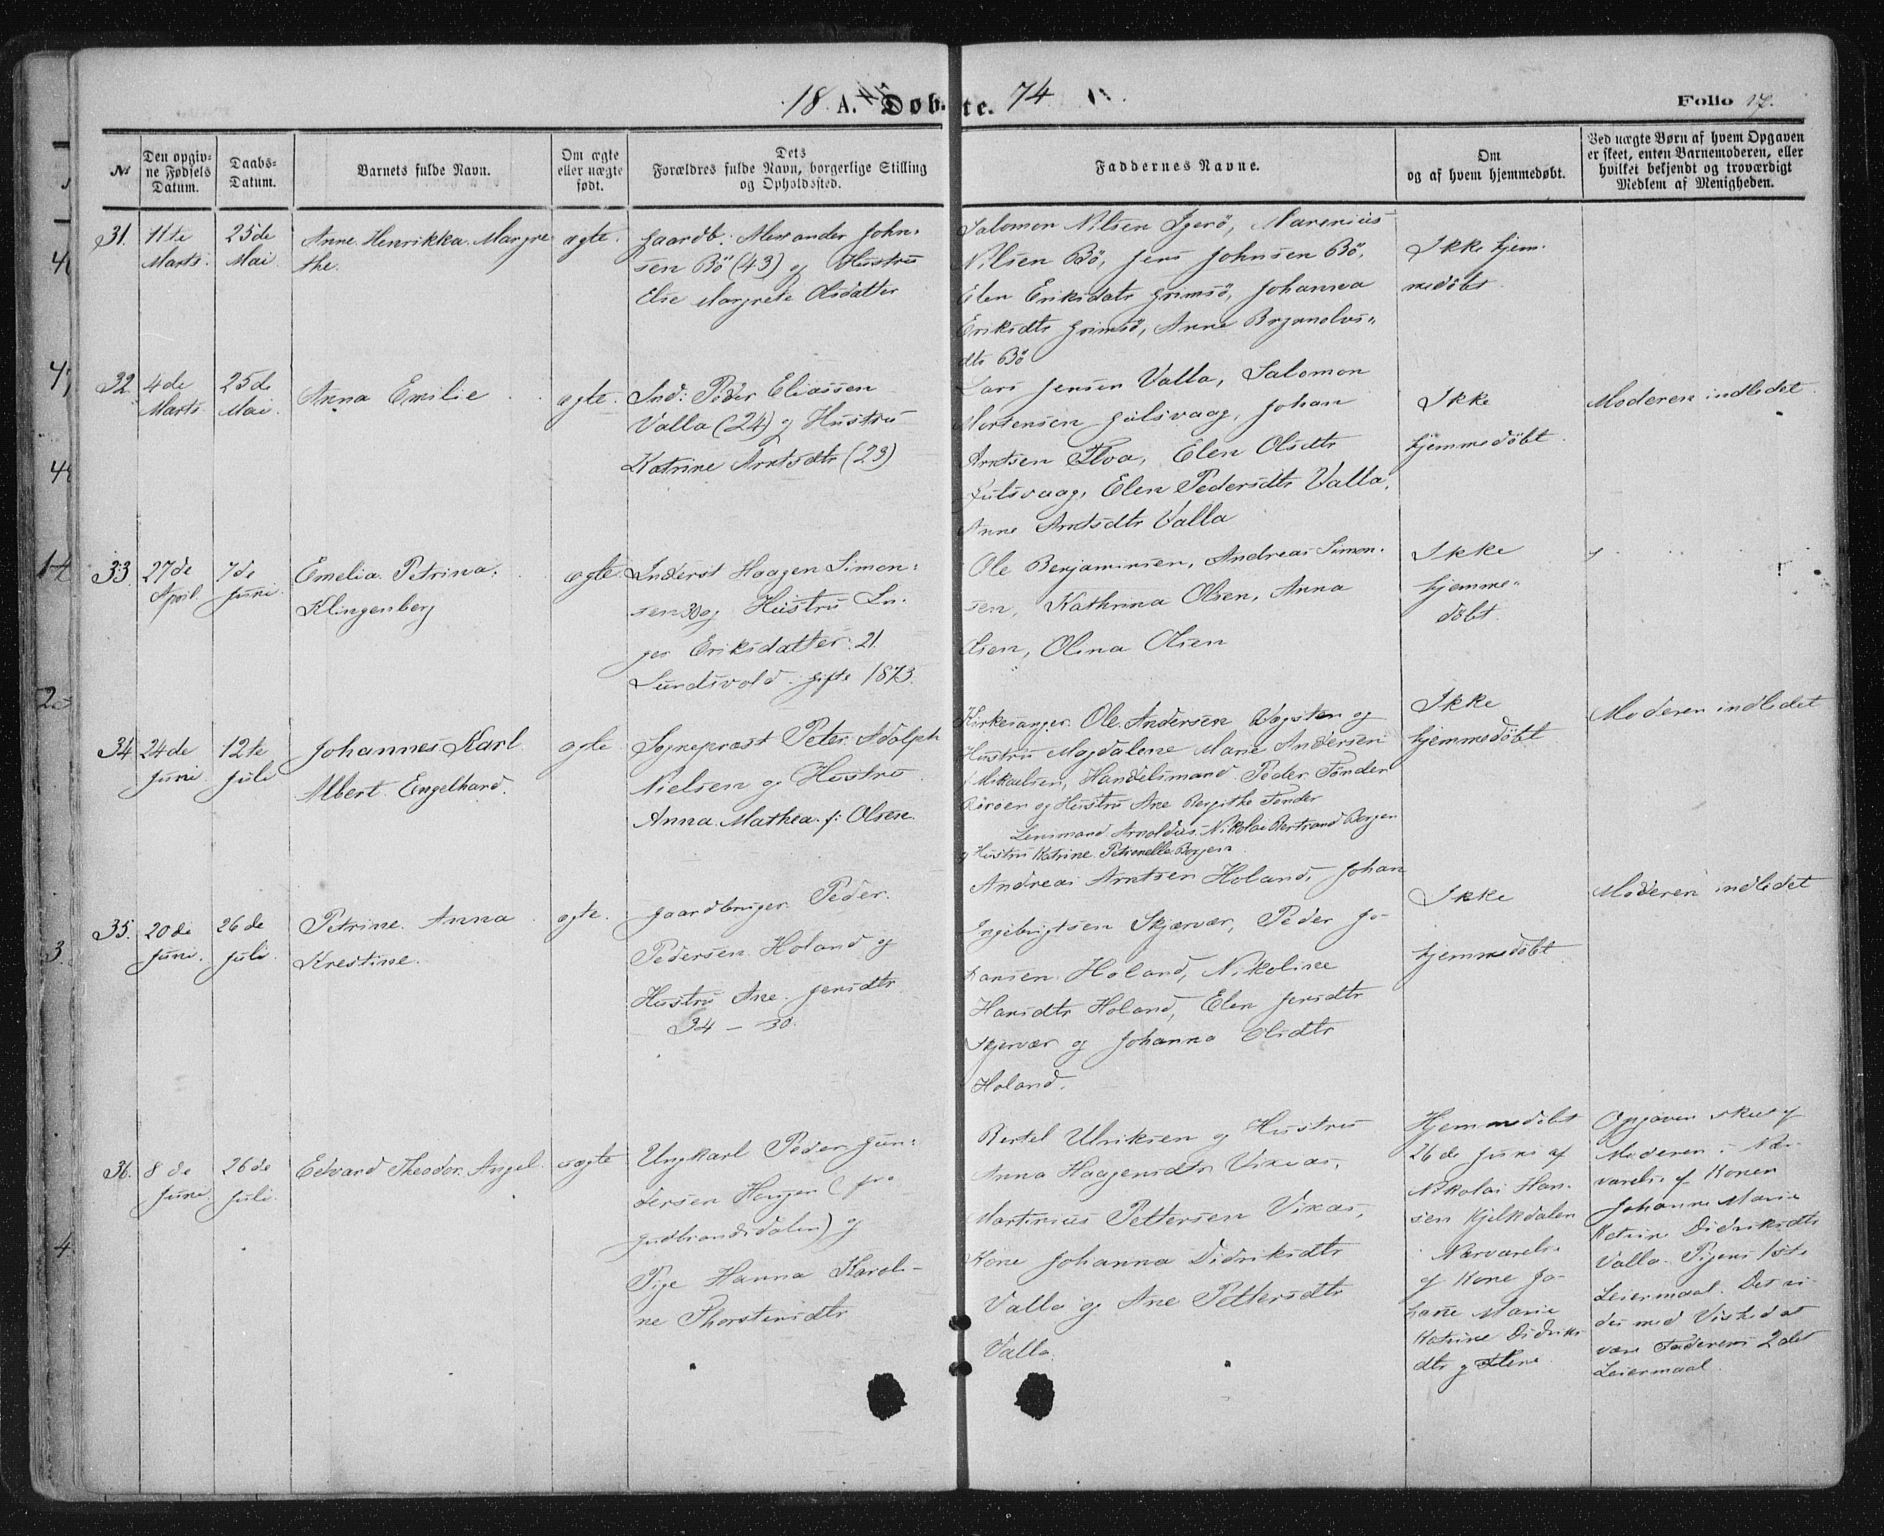 18 A. Døbte. 74 Folio 17.
No
Den opgivne Fødsels Datum.
Daabs-Datum.
Barnets fulde Navn.
Om ægte eller uægte født.
Dets Forældres fulde Navn, borgerlige Stilling og Opholdssted.
Faddernes Navne.
Om og af hvem hjemmedøbt.
Ved uægte Børn af hvem Opgaven er skeet, enten Barnemoderen, eller hvilket bekjendt og troværdigt Medlem af Menigheden.
31.
11te
Marts.
25de
Mai.
Anne Henrikka Margre
the.
ægte.
Gaardb. Alexander John-
sen Bö (43) og Hustru
Else Margrete Olsdatter
Salomon Nilsen Igerö, Marenius
Nilsen Bö, Jens Johnsen Bö,
Elen Eriksdatr Grimsö, Johanna
Eriksdtr Grimsö, Anne Brynolvs-
dtr Bö
Ikke hjem-
medöbt
32
4de
Marts
25de
Mai.
Anna Emilie
ægte.
Ind: Peder Eliassen
Valla (24) og Hustru
Katrine Arntsdtr (23)
Lars Jensen Valla, Salomon
Mortensen Gulsvaag, Johan
Arntsen Flva, Elen Olsdtr
Gulsvaag, Elen Pedersdtr Valla,
Anne Arntsdtr Valla
Ikke
hjemmedöbt
Moderen indledet
33.
27de
April.
7de
Juni.
Emelia Petrina
Klingenberg
ægte
Inderst Haagen Simon-
sen 30 og Hustru In-
ger Eriksdatter 21
Sundsvold. gifte 1873.
Ole Benjaminsen, Andreas Simon-
sen, Kathrina Olsen, Anna
Olsen, Olina Olsen
Ikke
hjemme-
döbt.
34
24de
Juni.
12te
Juli
Johannes Karl
Albert Engelhard.
ægte
Sognepræst Peter Adolph
Nielsen og Hustru
Anna Mathea f: Olsen.
Kirkesanger Ole Andersen Vogsten og
Hustru Magdalene Marie Andersen
f Mikaelsen, Handelsmand Peder Tönder
Rörøen og Hustru Ane Bergithe Tönder
Lensmand Arnoldus Nikolai Bertrand Borgen
og Hustru Katrine Petronelle Borgen
Ikke
hjemmedöbt
Moderen indledet
35.
20de
Juni.
26de
Juli.
Petrine Anna
Krestine.
ægte.
Gaardbruger Peder
Pedersen Holand og
Hustru Ane Jensdtr
34 – 30.
Andreas Arntsen Holand, Johan
Ingebrigtsen Skjærvær, Peder Jo-
hansen Holand, Nikoline
Hansdtr Holand, Elen Jensdtr
Skjervær og Johanna Olsdtr
Holand.
Ikke
hjemmedöbt
Moderen indledet
36.
8de
Juni
26de
Juli.
Edvard Theodor Angel.
uægte
Ungkarl Peder Gun-
dersen Haugen (fra
Gudbrandsdalen) og
Pige Hanna Karoli-
ne Thorstensdtr
Bertel Ulriksen og Hustru
Anna Haagensdtr Vixaas,
Martinius Pettersen Vixas,
Kone Johanna Didriksdtr
Valla og Ane Pettersdtr
Valla.
Hjemmedöbt
26de Juni af
Nikolai Han-
sen Kjelkdalen
i Nærværelse
af Kone Jo-
hanne Marie
Katrine Didriks
dtr og
Opgaven skeet af
Moderen i Nær-
værelse af Konen
Johanne Marie
Katrine Didriksdtr
Valla. Pigens 1ste
Leiermaal. Det vi-
des med Vished at
være Faderens 2det
Leiermaal.